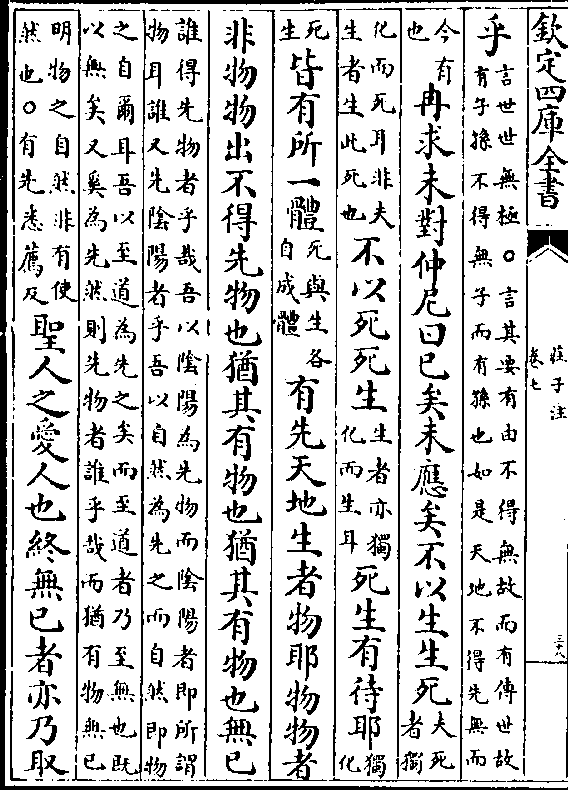 欽定四庫全書
莊子注
卷七
三十八
乎言世世無極○言其要有由不得無故而有傳世故
有子孫不得無子而有孫也如是天地不得先無而
今有
也冉求未對仲尼曰已矣未應矣不以生生死夫死
者獨
化而死耳非夫
生者生此死也不以死死生生者亦獨
化而生耳死生有待耶獨
化
死
生皆有所一體死與生各
自成體有先天地生者物耶物物者
非物物出不得先物也猶其有物也猶其有物也無已
誰得先物者乎哉吾以陰陽為先物而陰陽者即所謂
物耳誰又先陰陽者乎吾以自然為先之而自然即物
之自爾耳吾以至道為先之矣而至道者乃至無也既
以無矣又奚為先然則先物者誰乎哉而猶有物無已
明物之自然非有使
然也○有先悉薦反聖人之愛人也終無已者亦乃取